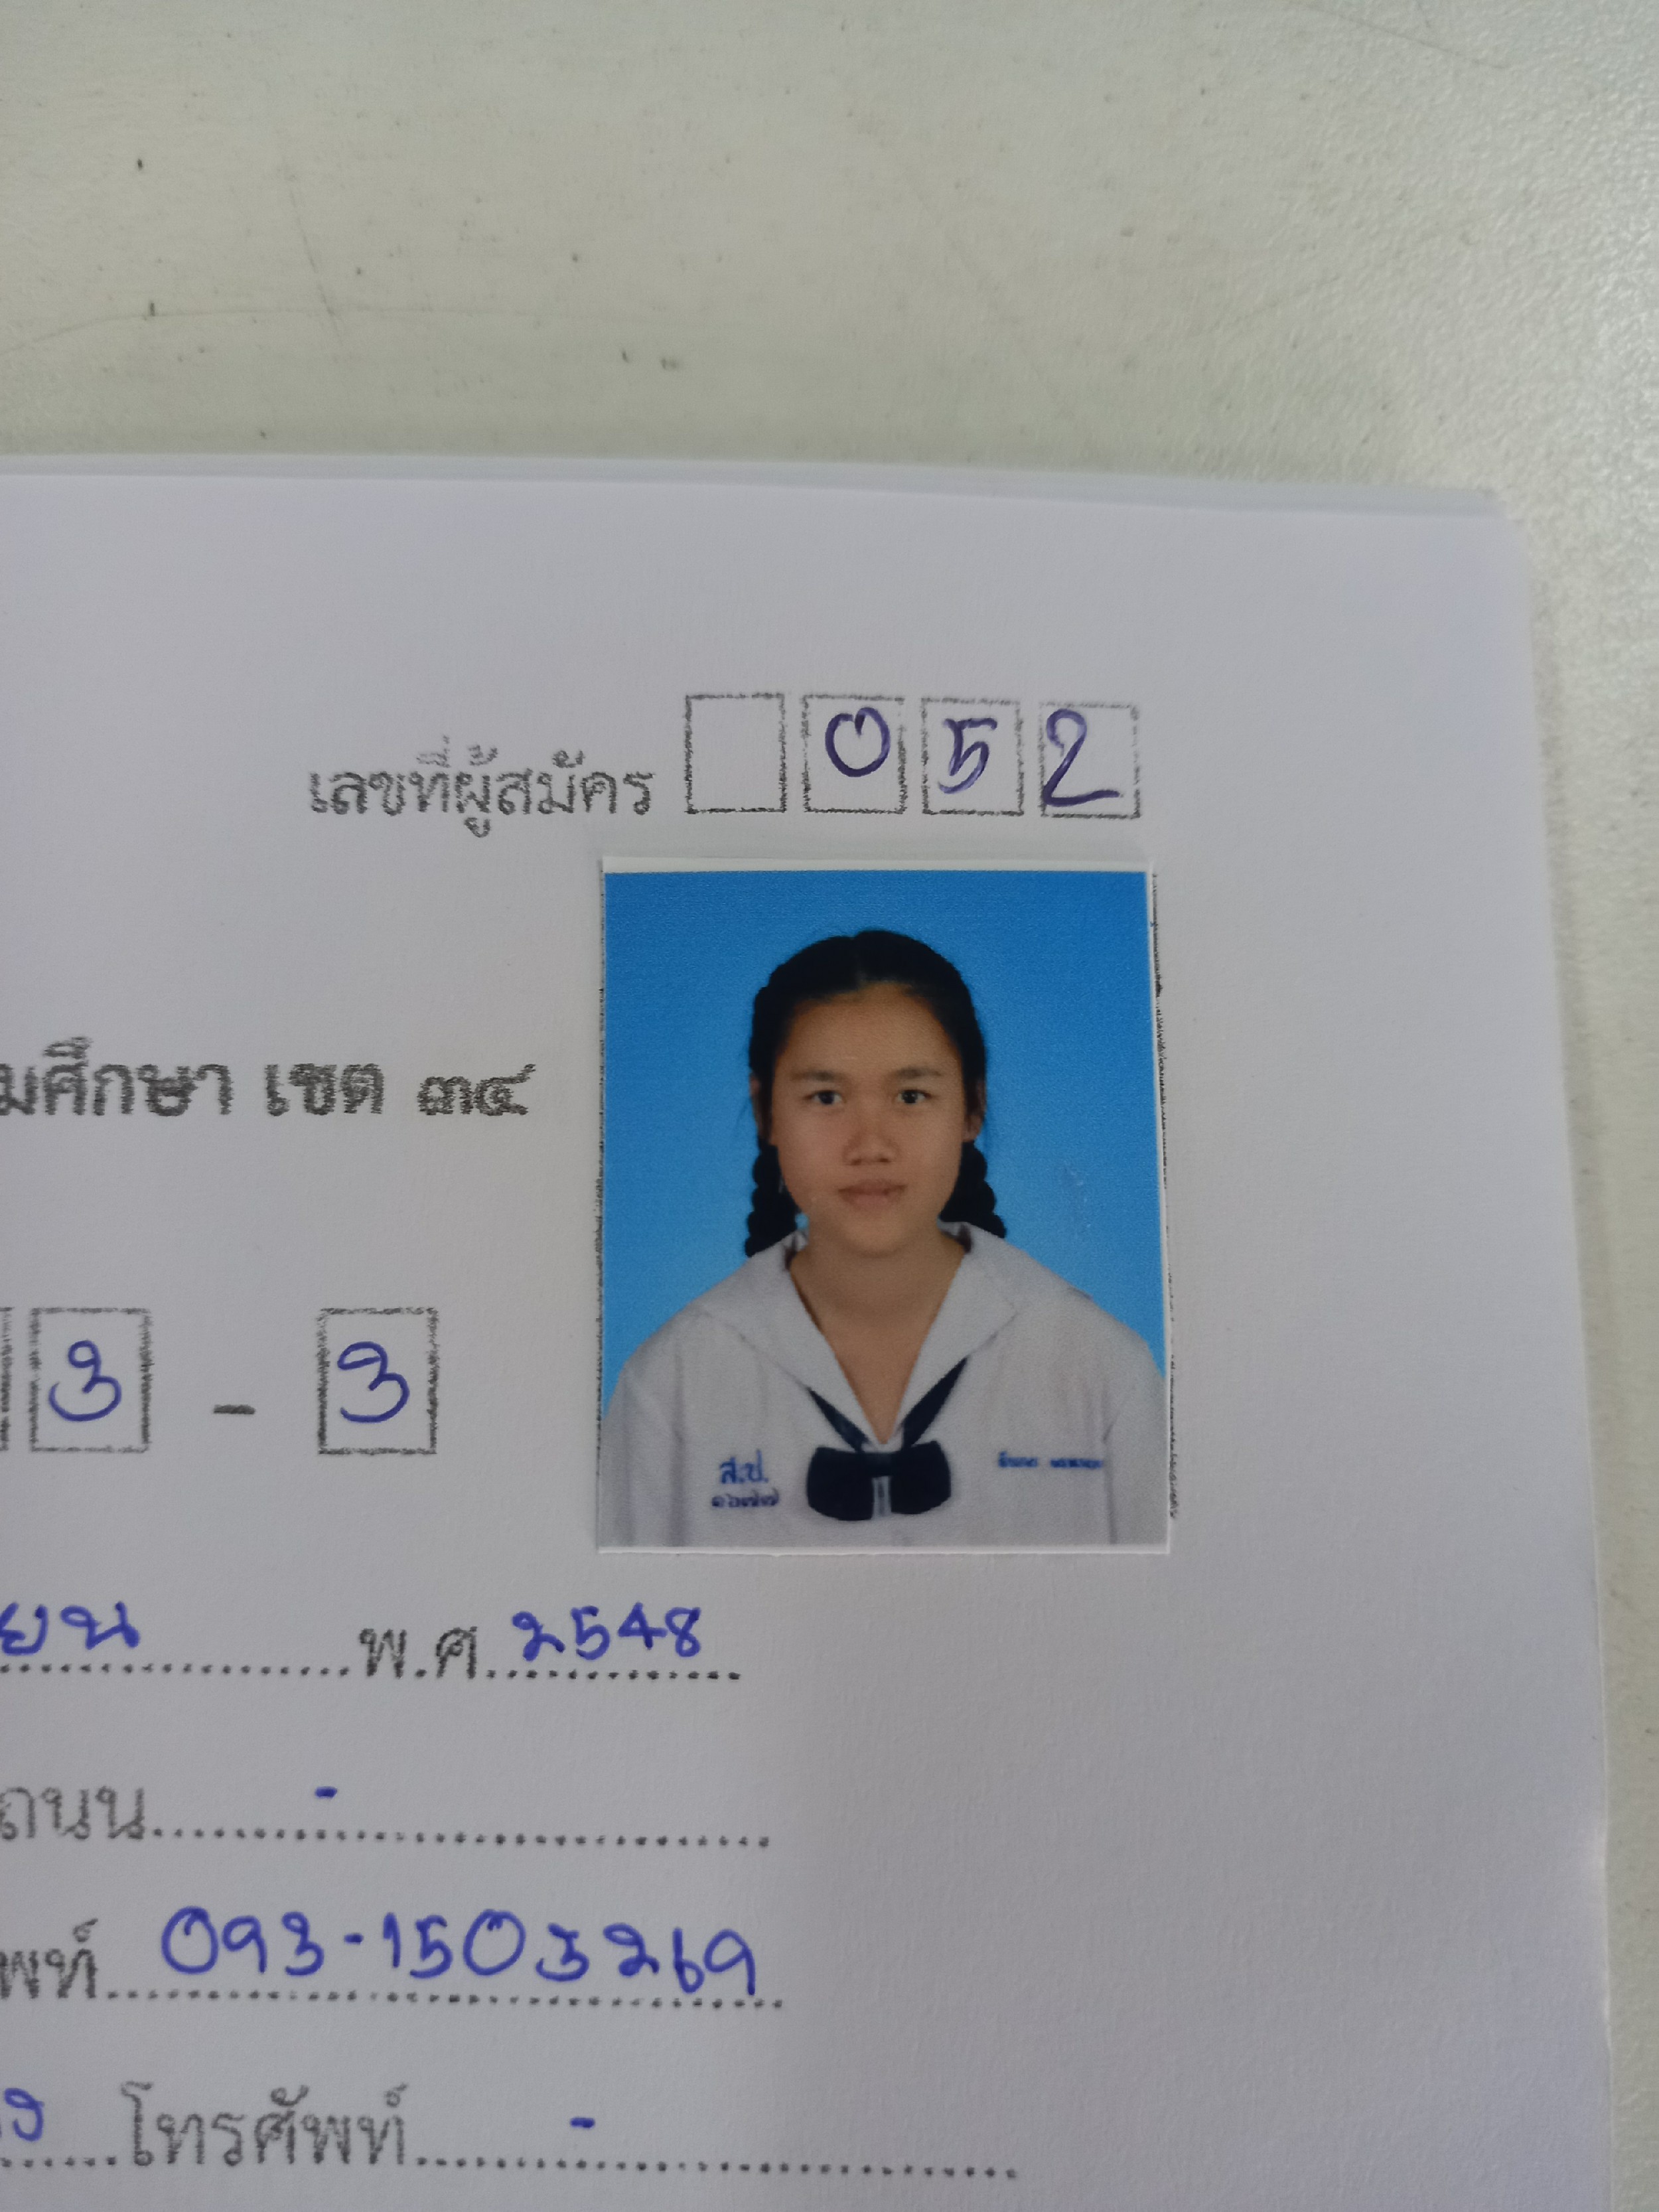 เลขที่ผู้สมัคร 052
มศึกษา เขต ๓๔
3 - 3
ส.ป.
๑๖๗๗
ยน พ.ศ. 2548
ถนน -
พท์ 093-1503269
โทรศัพท์ -